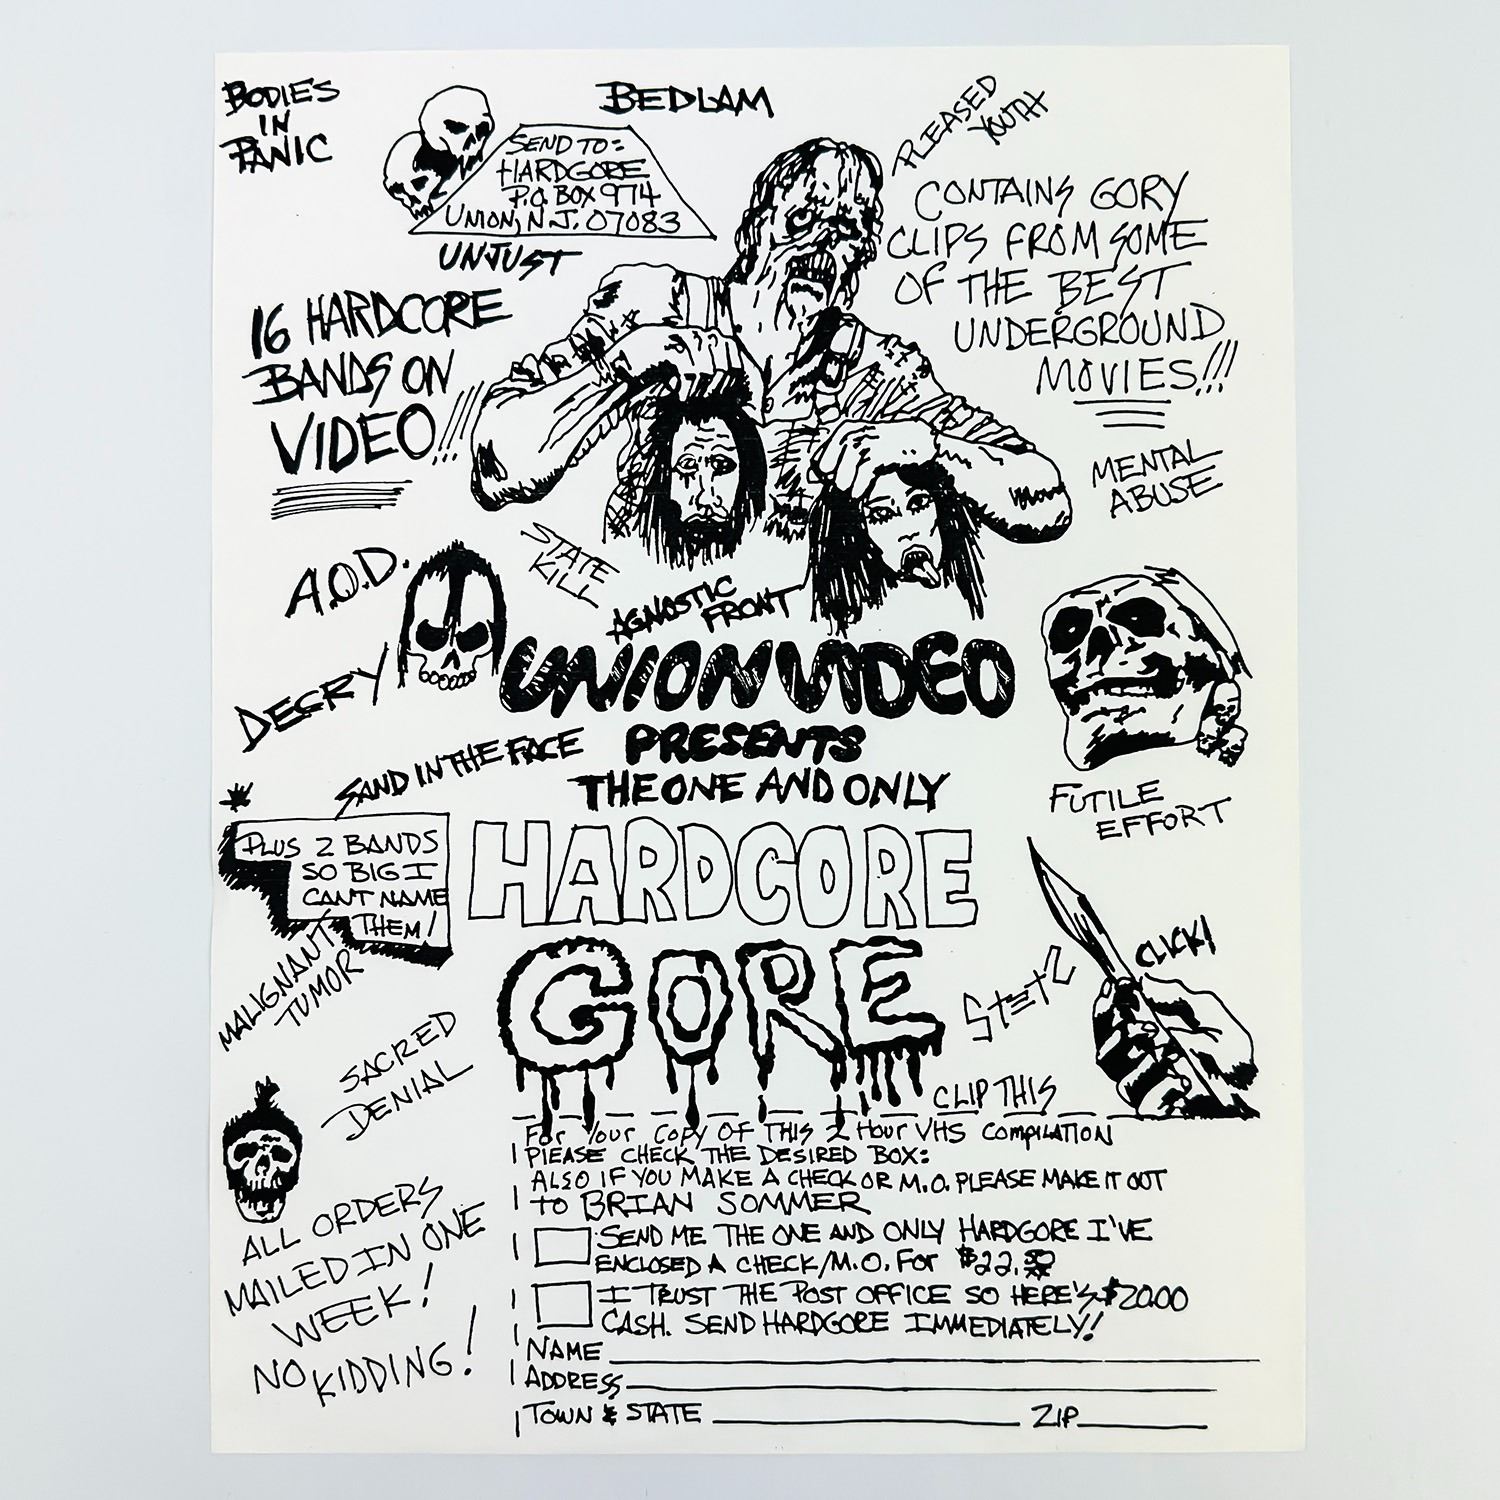 BODIES
IN
PANIC
BEDLAM
PLEASED
YOUTH
SEND TO:
HARDGORE
P.O. BOX 974
UNION, N.J. 07083
UNJUST
CONTAINS GORY
CLIPS FROM SOME
OF THE BEST
UNDERGROUND
MOVIES!!!
16 HARDCORE
BANDS ON
VIDEO!!!
MENTAL
ABUSE
STATE
KILL
A.O.D.
AGNOSTIC
FRONT
DECRY
UNION VIDEO
PRESENTS
THE ONE AND ONLY
SAND IN THE FACE
FUTILE
EFFORT
*
PLUS 2 BANDS
SO BIG I
CAN'T NAME
THEM!
HARDCORE
GORE
MALIGNANT
TUMOR
CLICK!
SACRED
DENIAL
CLIP THIS
For Your Copy OF THIS 2 Hour VHS COMPILATION
PLEASE CHECK THE DESIRED BOX:
ALSO IF YOU MAKE A CHECK OR M.O. PLEASE MAKE IT OUT
to BRIAN SOMMER
SEND ME THE ONE AND ONLY HARDGORE I'VE
ENCLOSED A CHECK/M.O. FOR $22.50
I TRUST THE POST OFFICE SO HERE'S $20.00
CASH. SEND HARDGORE IMMEDIATELY!
NAME
ADDRESS
TOWN & STATE ZIP
ALL ORDERS
MAILED IN ONE
WEEK!
NO KIDDING!